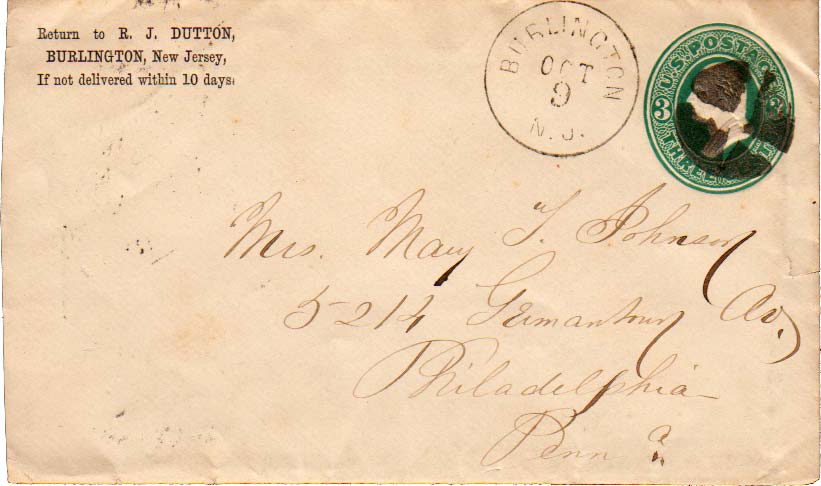 Return to R. J. DUTTON,
BURLINGTON, New Jersey,
If not delivered within 10 days.
BURLINGTON
OCT
9
N. J.
U.S. POSTAGE
3
THREE
Mrs. Mary T. Johnson
5214 Germantown Av.
Philadelphia
Penn a.